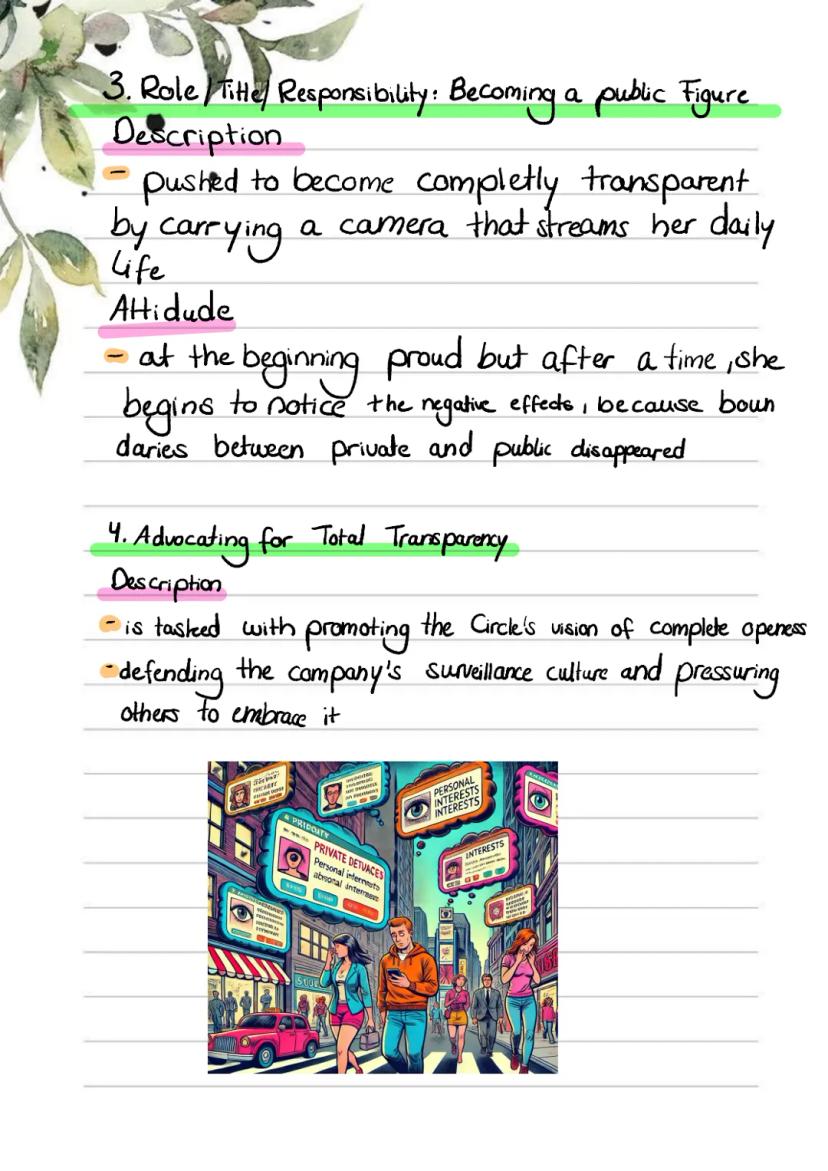 3. Role/Title/Responsibility: Becoming a public Figure
Description
- pushed to become completly transparent
by carrying a camera that streams her daily
Life
Attidude
- at the beginning proud but after a time, she
begins to notice the negative effects, because boun
daries between private and public disappeared
4. Advocating for Total Transparency
Description
- is tasked with promoting the Circle's vision of complete openess
- defending the company's surveillance culture and pressuring
others to embrace it
PERSONAL
INTERESTS
INTERESTS
PRIVATE DETUACES
Personal interests
INTERESTS